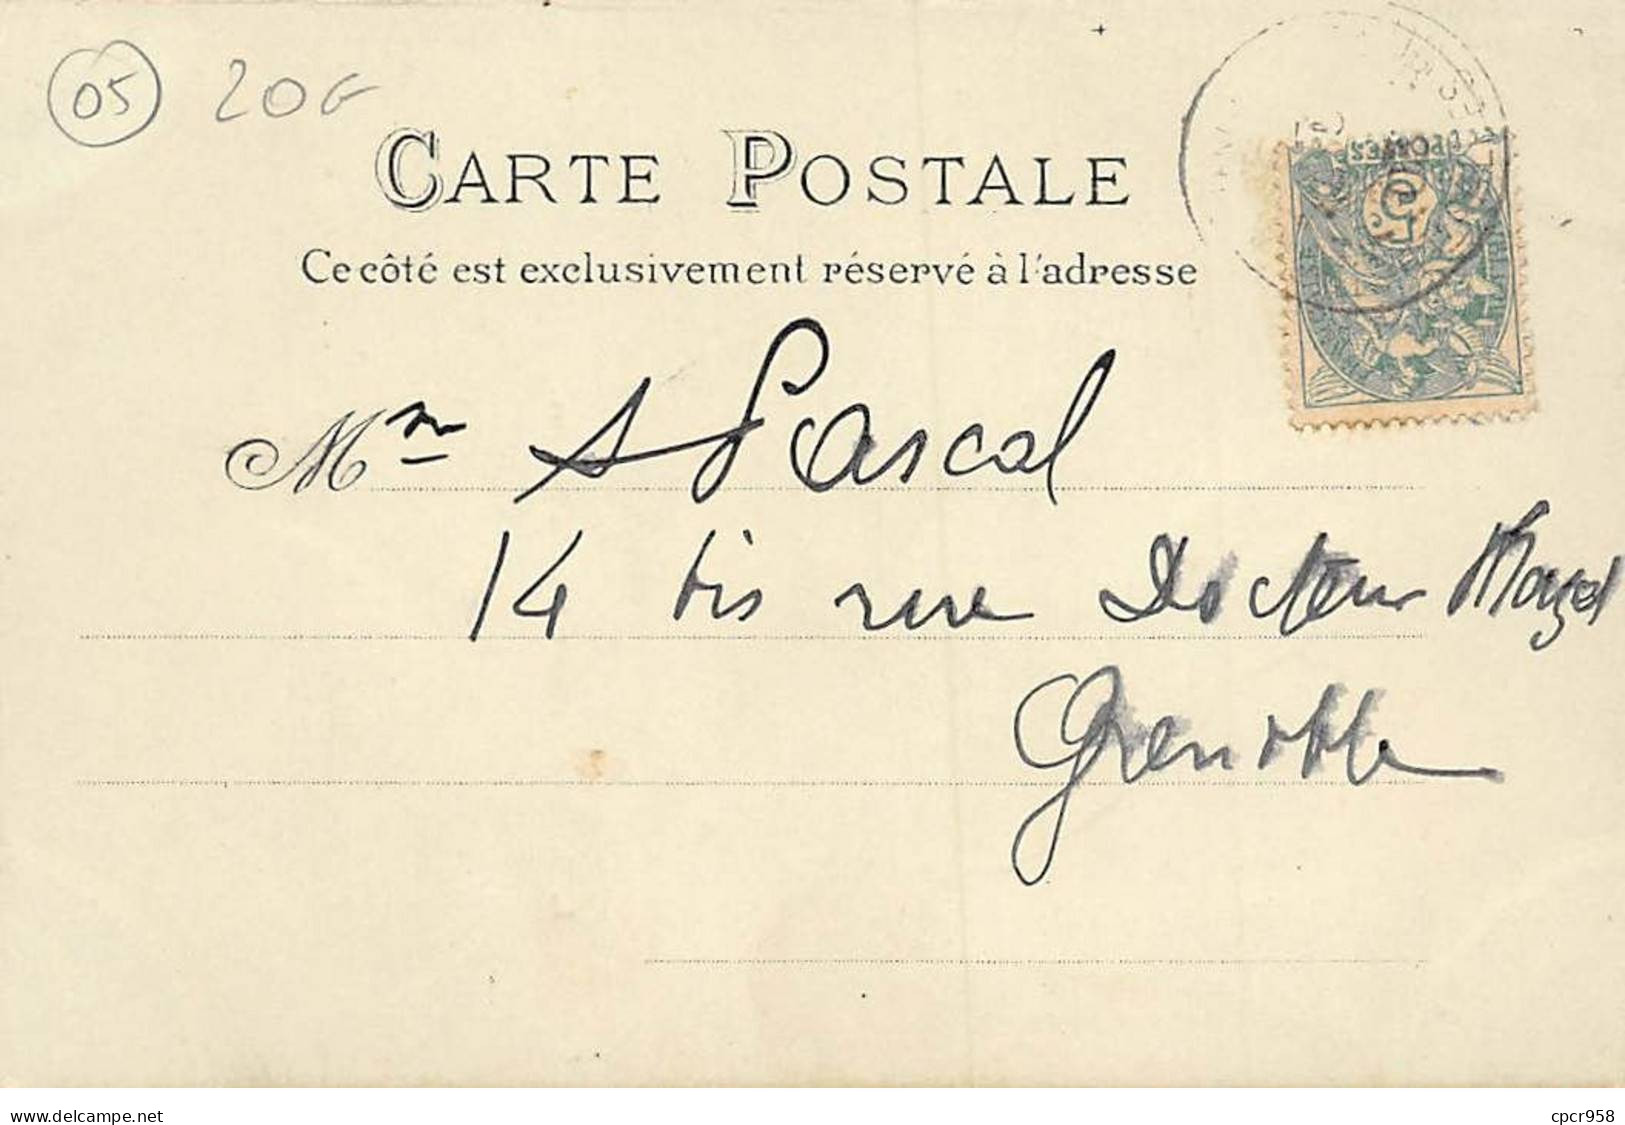 05 20G
CARTE POSTALE
Ce côté est exclusivement réservé à l'adresse
Mme A Pascal
14 bis rue Docteur Mazel
Grenoble
www.delcampe.net cpcr958